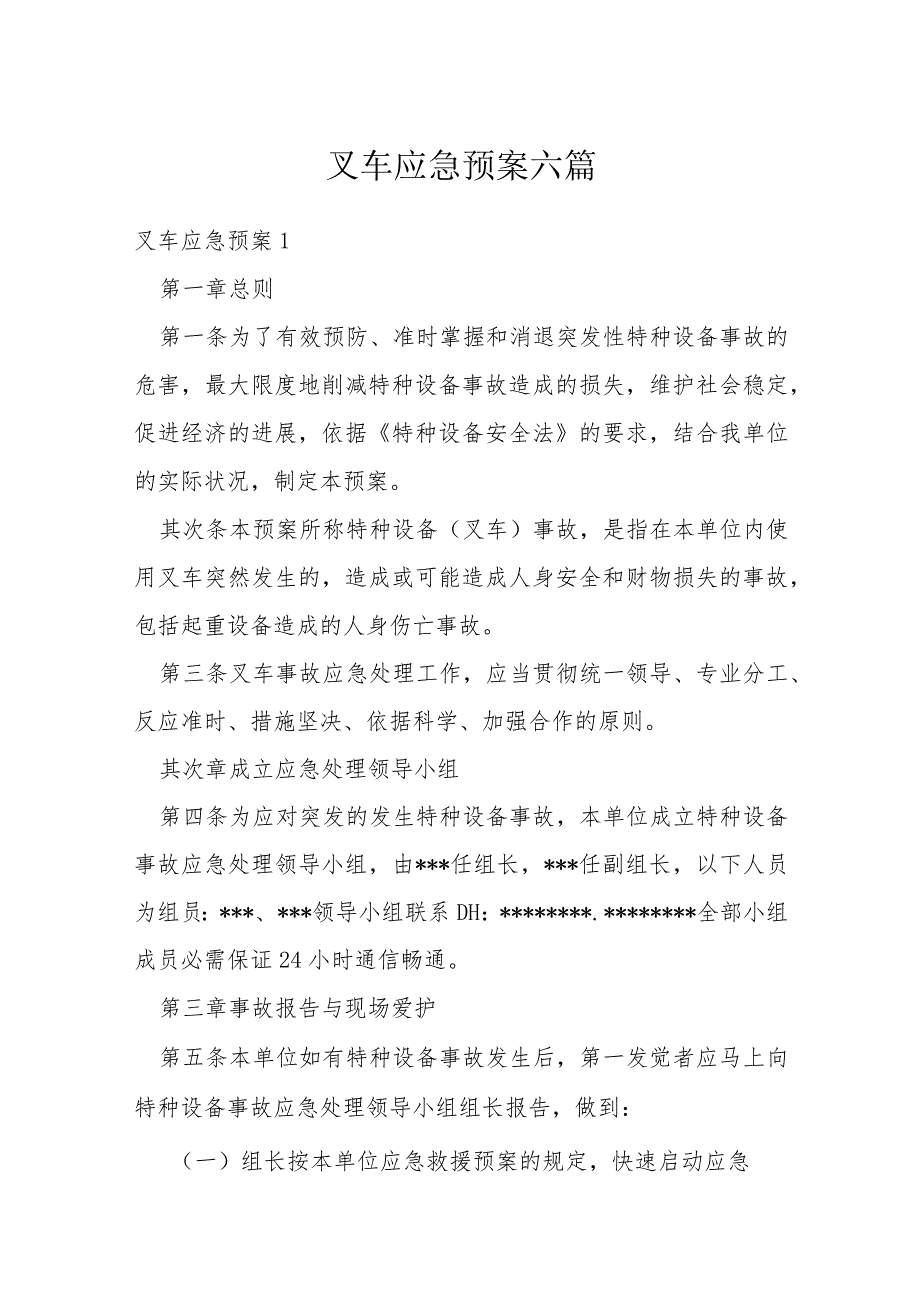 叉车应急预案六篇
叉车应急预案1
第一章总则
第一条为了有效预防、准时掌握和消退突发性特种设备事故的
危害，最大限度地削减特种设备事故造成的损失，维护社会稳定，
促进经济的进展，依据《特种设备安全法》的要求，结合我单位
的实际状况，制定本预案。
其次条本预案所称特种设备（叉车）事故，是指在本单位内使
用叉车突然发生的，造成或可能造成人身安全和财物损失的事故，
包括起重设备造成的人身伤亡事故。
第三条叉车事故应急处理工作，应当贯彻统一领导、专业分工、
反应准时、措施坚决、依据科学、加强合作的原则。
其次章成立应急处理领导小组
第四条为应对突发的发生特种设备事故，本单位成立特种设备
事故应急处理领导小组，由***任组长，***任副组长，以下人员
为组员：***、***领导小组联系DH：********.********全部小组
成员必需保证24小时通信畅通。
第三章事故报告与现场爱护
第五条本单位如有特种设备事故发生后，第一发觉者应马上向
特种设备事故应急处理领导小组组长报告，做到：
（一）组长按本单位应急救援预案的规定，快速启动应急